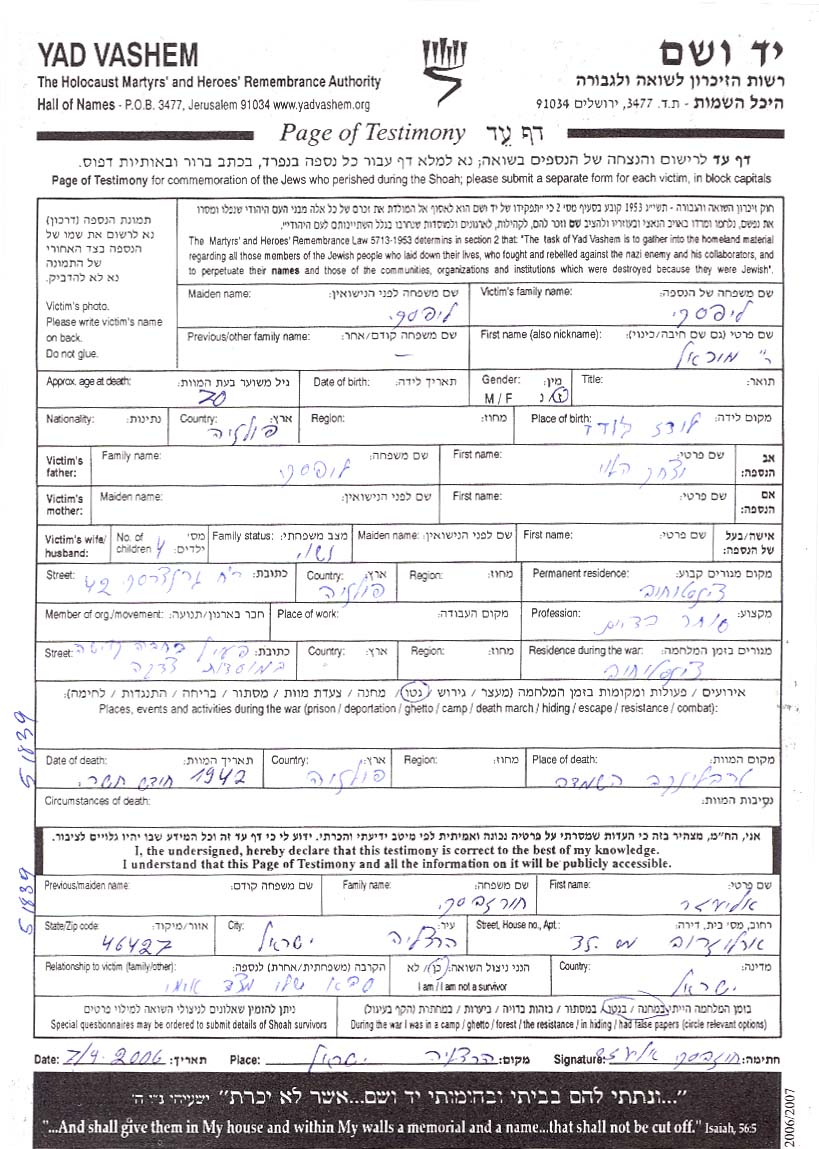 YAD VASHEM
יד ושם
The Holocaust Martyrs' and Heroes' Remembrance Authority
רשות הזיכרון לשואה ולגבורה
Hall of Names - P.O.B. 3477, Jerusalem 91034 www.yadvashem.org
היכל השמות - ת.ד. 3477, ירושלים 91034
Page of Testimony דף עד
דף עד לרישום והנצחה של הנספים בשואה; נא למלא דף עבור כל נספה בנפרד, בכתב ברור ובאותיות דפוס.
Page of Testimony for commemoration of the Jews who perished during the Shoah; please submit a separate form for each victim, in block capitals
תמונת הנספה (דרכון)
נא לרשום את שמו של
הנספה בצד האחורי
של התמונה
נא לא להדביק.
Victim's photo.
Please write victim's name
on back.
Do not glue.
חוק זיכרון השואה והגבורה - תשי"ג 1953 קובע בסעיף מס' 2 כי "תפקידו של יד ושם הוא לאסוף אל המולדת את זכרם של כל אלה מבני העם היהודי שנפלו ומסרו
את נפשם, נלחמו ומרדו באויב הנאצי ובעוזריו ולהציב שם וזכר להם, לקהילות, לארגונים ולמוסדות שנחרבו בגלל השתייכותם לעם היהודי".
The Martyrs' and Heroes' Remembrance Law 5713-1953 determins in section 2 that: "The task of Yad Vashem is to gather into the homeland material
regarding all those members of the Jewish people who laid down their lives, who fought and rebelled against the nazi enemy and his collaborators, and
to perpetuate their names and those of the communities, organizations and institutions which were destroyed because they were Jewish".
Maiden name: שם משפחה לפני הנישואין:
ליפסקי
Victim's family name: שם משפחה של הנספה:
ליפסקי
Previous/other family name: שם משפחה קודם/אחר:
—
First name (also nickname): שם פרטי (גם שם חיבה/כינוי):
Approx. age at death: גיל משוער בעת המוות:
70
Date of birth: תאריך לידה:
Gender: מין:
M / F ז / נ
Title: תואר:
Nationality: נתינות:
Country: ארץ:
פולניה
Region: מחוז:
Place of birth: מקום לידה:
לודז
Victim's father:
Family name: שם משפחה:
ליפסקי
First name: שם פרטי:
יצחק
אב הנספה:
Victim's mother:
Maiden name: שם לפני הנישואין:
First name: שם פרטי:
אם הנספה:
Victim's wife/ husband:
No. of children מס' ילדים:
4
Family status: מצב משפחתי:
נשוי
Maiden name: שם לפני הנישואין:
First name: שם פרטי:
אישה/בעל של הנספה:
Street: כתובת:
רח' 42
Country: ארץ:
פולניה
Region: מחוז:
Permanent residence: מקום מגורים קבוע:
צ'נסטוחוב
Member of org./movement: חבר בארגון/תנועה:
Place of work: מקום העבודה:
Profession: מקצוע:
סוחר בדים
Street: כתובת:
פעיל בחברה קדישה
במוסדות צדקה
Country: ארץ:
Region: מחוז:
Residence during the war: מגורים בזמן המלחמה:
אירועים / פעולות ומקומות בזמן המלחמה (מעצר / גירוש / גטו / מחנה / צעדת מוות / מסתור / בריחה / התנגדות / לחימה):
Places, events and activities during the war (prison / deportation / ghetto / camp / death march / hiding / escape / resistance / combat):
Date of death: תאריך המוות:
1942 חודש תשרי
Country: ארץ:
פולניה
Region: מחוז:
Place of death: מקום המוות:
טרבלינקה השמדה
Circumstances of death: נסיבות המוות:
51839
אני, הח"מ, מצהיר בזה כי העדות שמסרתי על פרטיה נכונה ואמיתית לפי מיטב ידיעתי והכרתי. ידוע לי כי דף עד זה וכל המידע שבו יהיו גלויים לציבור.
I, the undersigned, hereby declare that this testimony is correct to the best of my knowledge.
I understand that this Page of Testimony and all the information on it will be publicly accessible.
Previous/maiden name: שם משפחה קודם:
Family name: שם משפחה:
First name: שם פרטי:
אליעזר
State/Zip code: אזור/מיקוד:
46427
City: עיר:
הרצליה ישראל
Street, House no., Apt.: רחוב, מס' בית, דירה:
ארלוזרוב מס 35
51839
Relationship to victim (family/other): הקרבה (משפחתית/אחרת) לנספה:
סבא שלי מצד אימי
הנני ניצול השואה: כן / לא
I am / I am not a survivor
Country: מדינה:
ישראל
ניתן להזמין שאלונים לניצולי השואה למילוי פרטים
Special questionnaires may be ordered to submit details of Shoah survivors
בזמן המלחמה הייתי במחנה / בגטו / במסתור / בזהות בדויה / ביערות / במחתרת (הקף בעיגול)
During the war I was in a camp / ghetto / forest / the resistance / in hiding / had false papers (circle relevant options)
Date: 7/9.2006 תאריך: Place: ישראל הרצליה מקום: Signature: חתימה:
"...ונתתי להם בביתי ובחומותי יד ושם...אשר לא יכרת" ישעיהו נ"ו ה'
"...And shall give them in My house and within My walls a memorial and a name...that shall not be cut off." Isaiah, 56:5
2006/2007